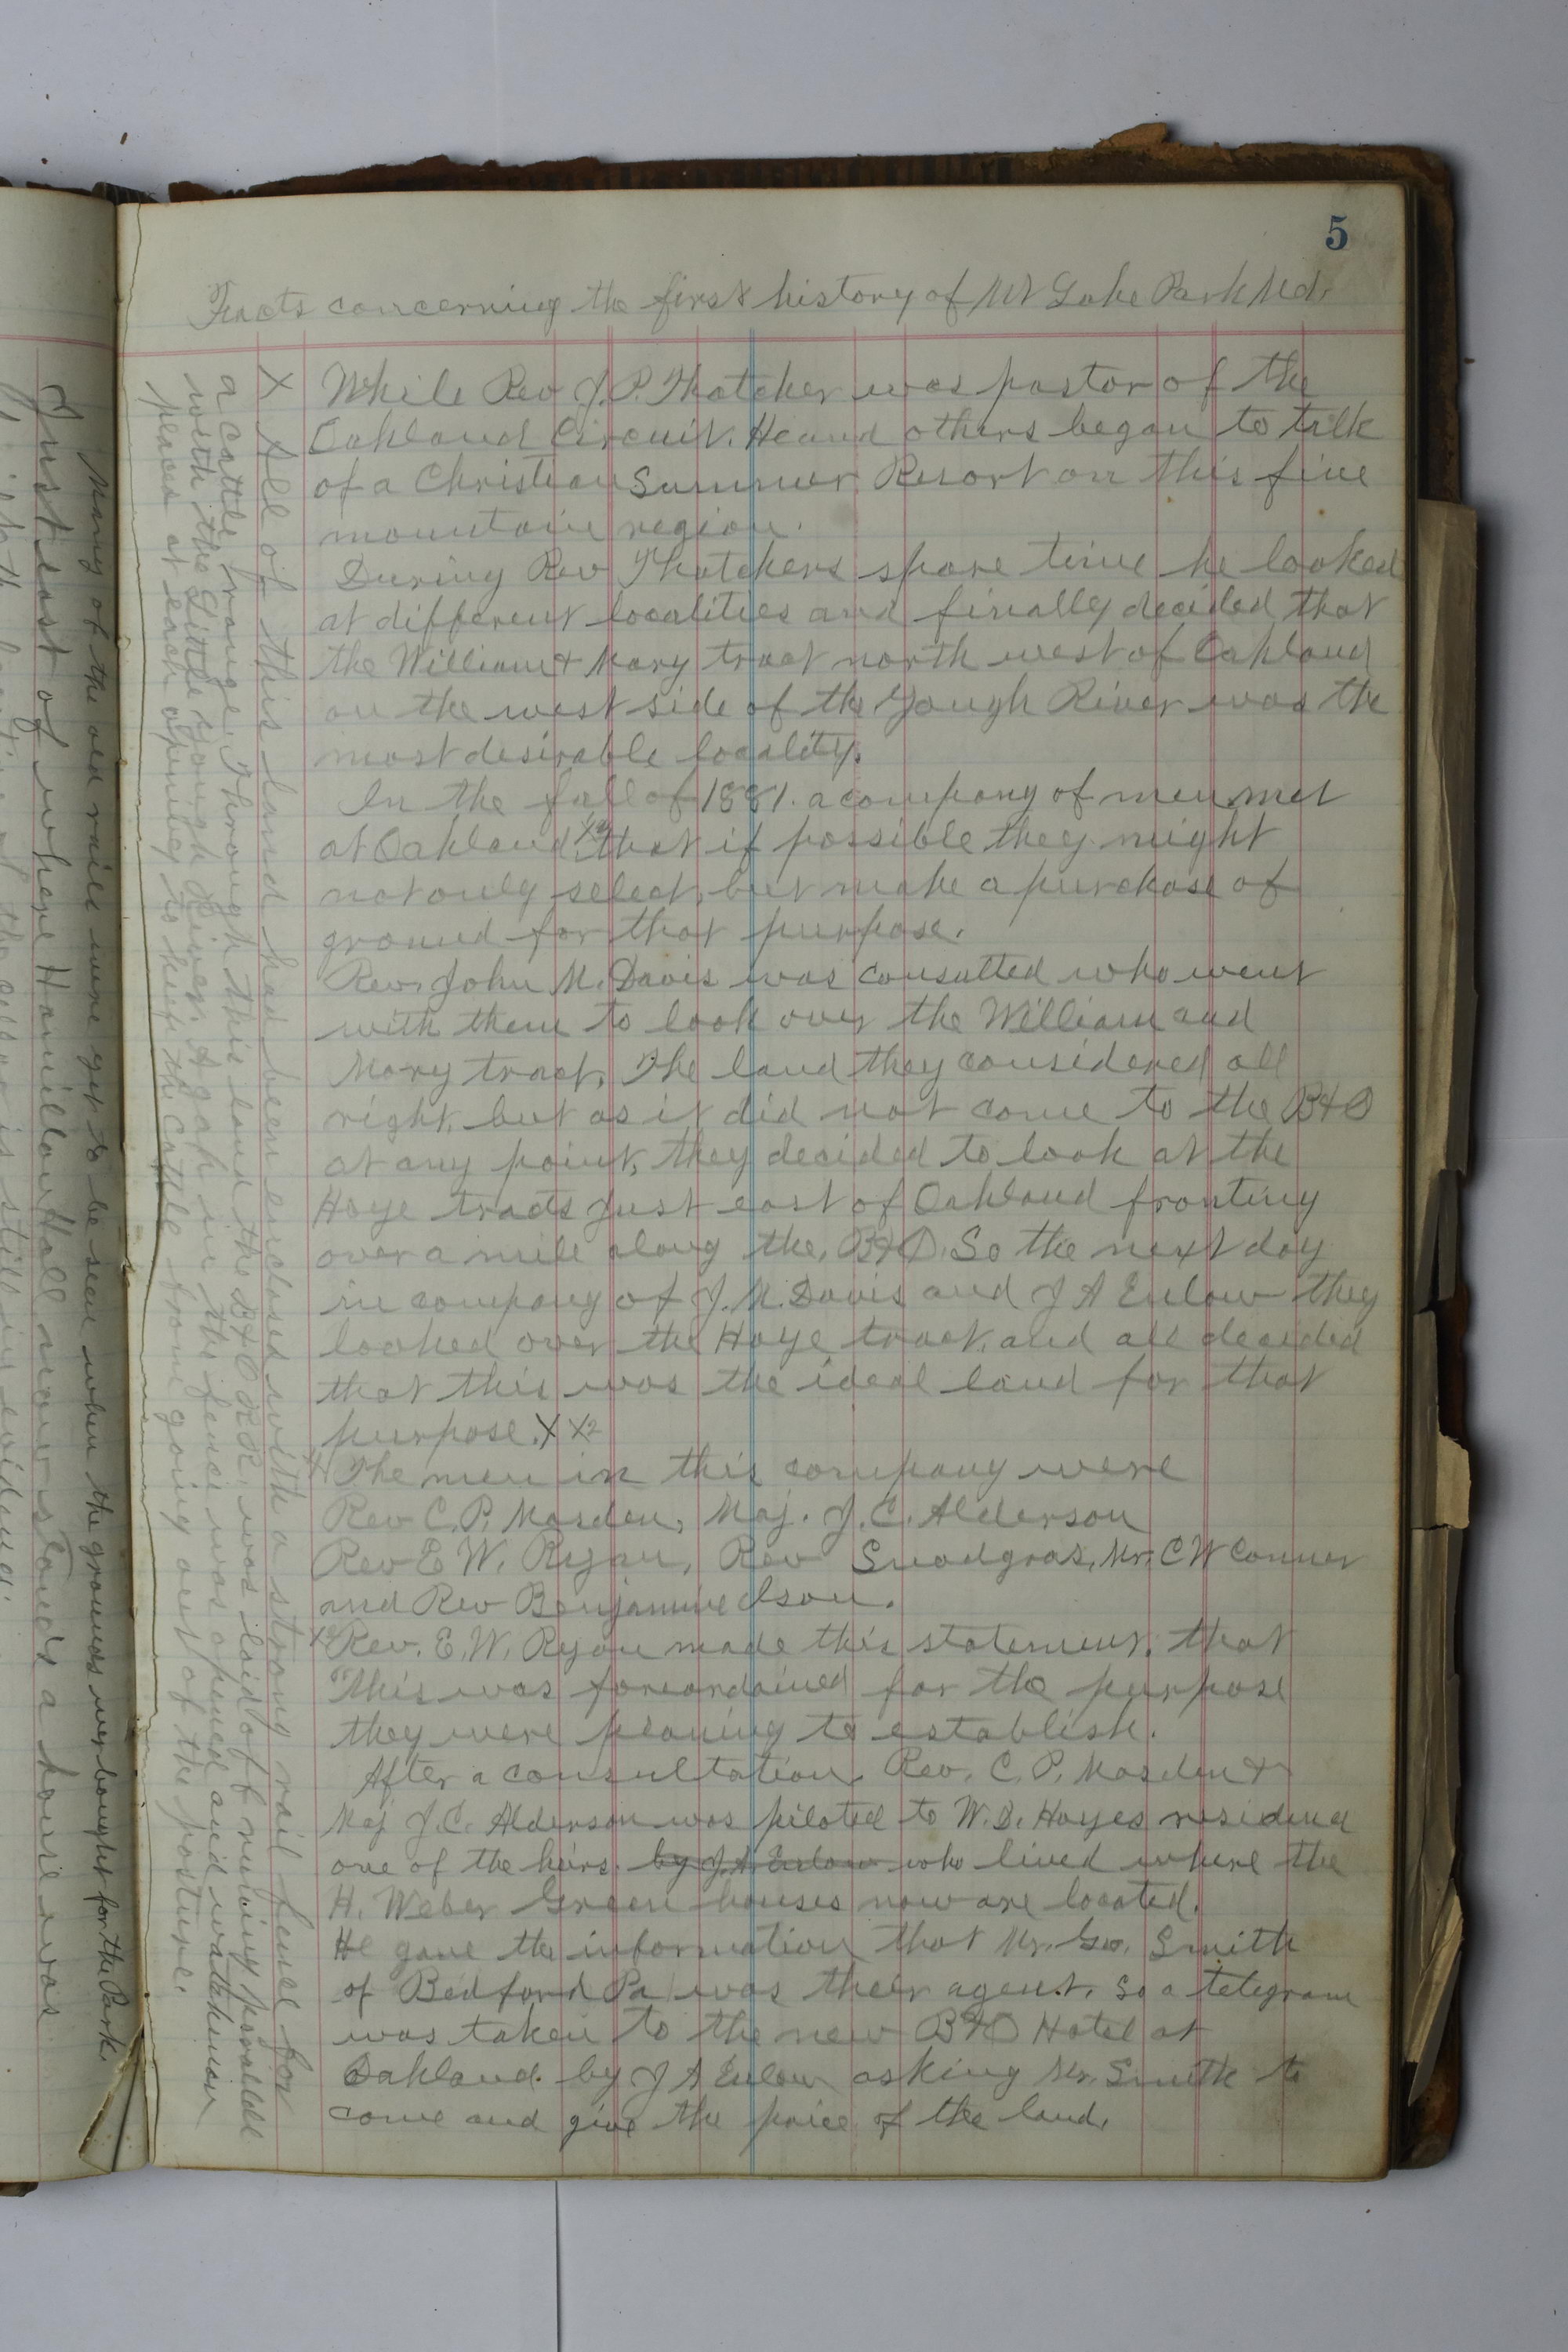 5
Facts concerning the first history of Mt Lake Park Md.
While Rev J. P. Thatcher was pastor of the
Oakland Circuit. He and others began to talk
of a Christian Summer Resort on this fine
mountain region.
During Rev Thatchers spare time he looked
at different localities and finally decided that
the William & Mary tract north west of Oakland
on the west side of the Yough River was the
most desirable locality.
In the fall of 1881. a company of men met
at Oakland, that if possible they might
not only select, but make a purchase of
ground for that purpose.
Rev. John M. Davis was consulted who went
with them to look over the William and
Mary tract. The land they considered all
right, but as it did not come to the B&O
at any point, they decided to look at the
Hoye tracts just east of Oakland fronting
over a mile along the B&O. So the next day
in company of J. M. Davis and J A Enlow they
looked over the Hoye tract, and all decided
that this was the ideal land for that
purpose. X X2
The men in this company were
Rev C. P. Masden, Maj. J. C. Alderson
Rev E W. Ryan, Rev Snodgras, Mr. C W Conner
and Rev Benjamine Ison.
Rev. E. W. Ryan made this statement. that
"This was foreordained for the purpose
they were planing to establish.
After a consultation. Rev. C. P. Masden &
Maj J. C. Alderson was piloted to W. D. Hoyes residence
one of the heirs. by J. A Enlow who lived where the
H. Weber Green houses now are located.
He gave the information that Mr. Geo. Smith
of Bedford Pa was their agent. So a telegram
was taken to the new B&O Hotel at
Oakland. by J A Enlow asking Mr. Smith to
come and give the price of the land.
X All of this land had been enclosed with a strong rail fence for
a cattle range. Through this land the B&O RR. was laid off runing paralell
with the Little Yough River. A gap in the fence was opened and watchman
places at each opening to keep the cattle from going out of the pasture.
Many of the old rails were yet to be seen when the grounds wer bought for the Park.
Just east of where Hamilton Hall now stands a house was